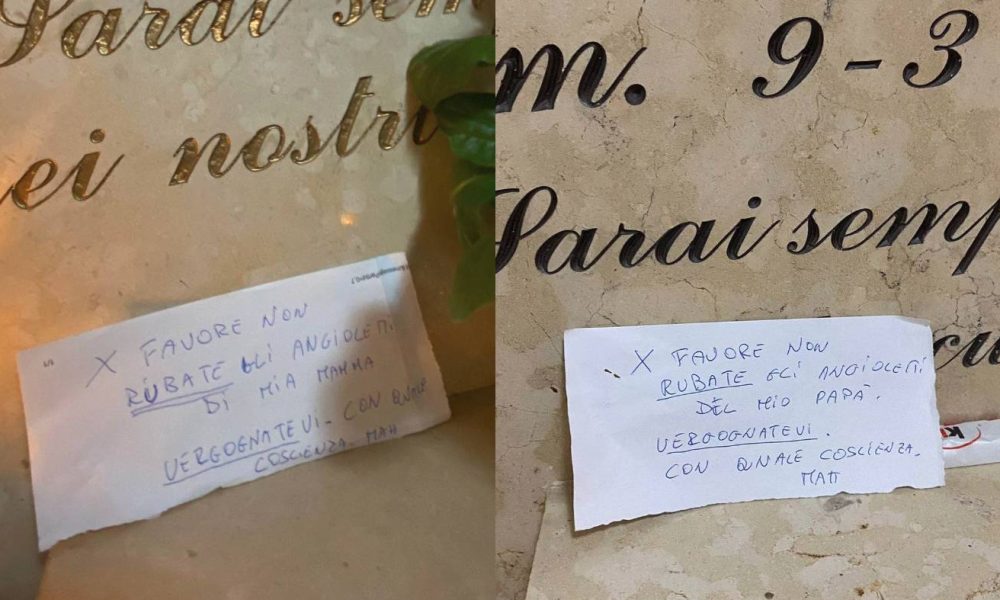 Sarai semp
ei nostri
X FAVORE NON
RUBATE GLI ANGIOLETTI
DI MIA MAMMA
VERGOGNATEVI - CON QUALE
COSCIENZA. MAH
m. 9-3
Sarai semp
cu
X FAVORE NON
RUBATE GLI ANGIOLETTI
DEL MIO PAPÀ.
VERGOGNATEVI.
CON QUALE COSCIENZA.
MAH